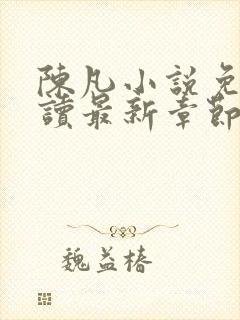 陳凡小說免
讀最新章節
魏益椿